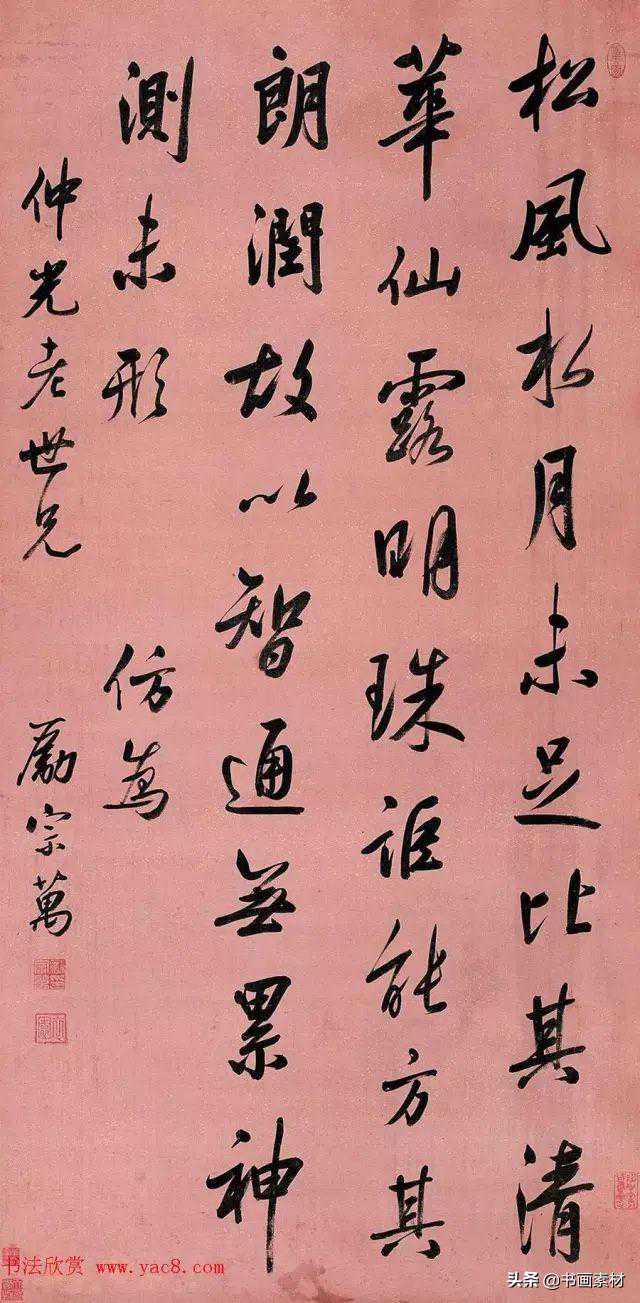 松風水月未足比其清
華仙露明珠詎能方其
朗潤故以智通無累神
測未形 仿為
仲光老世兄 勵宗萬
书法欣赏 www.yac8.com
头条 @书画素材